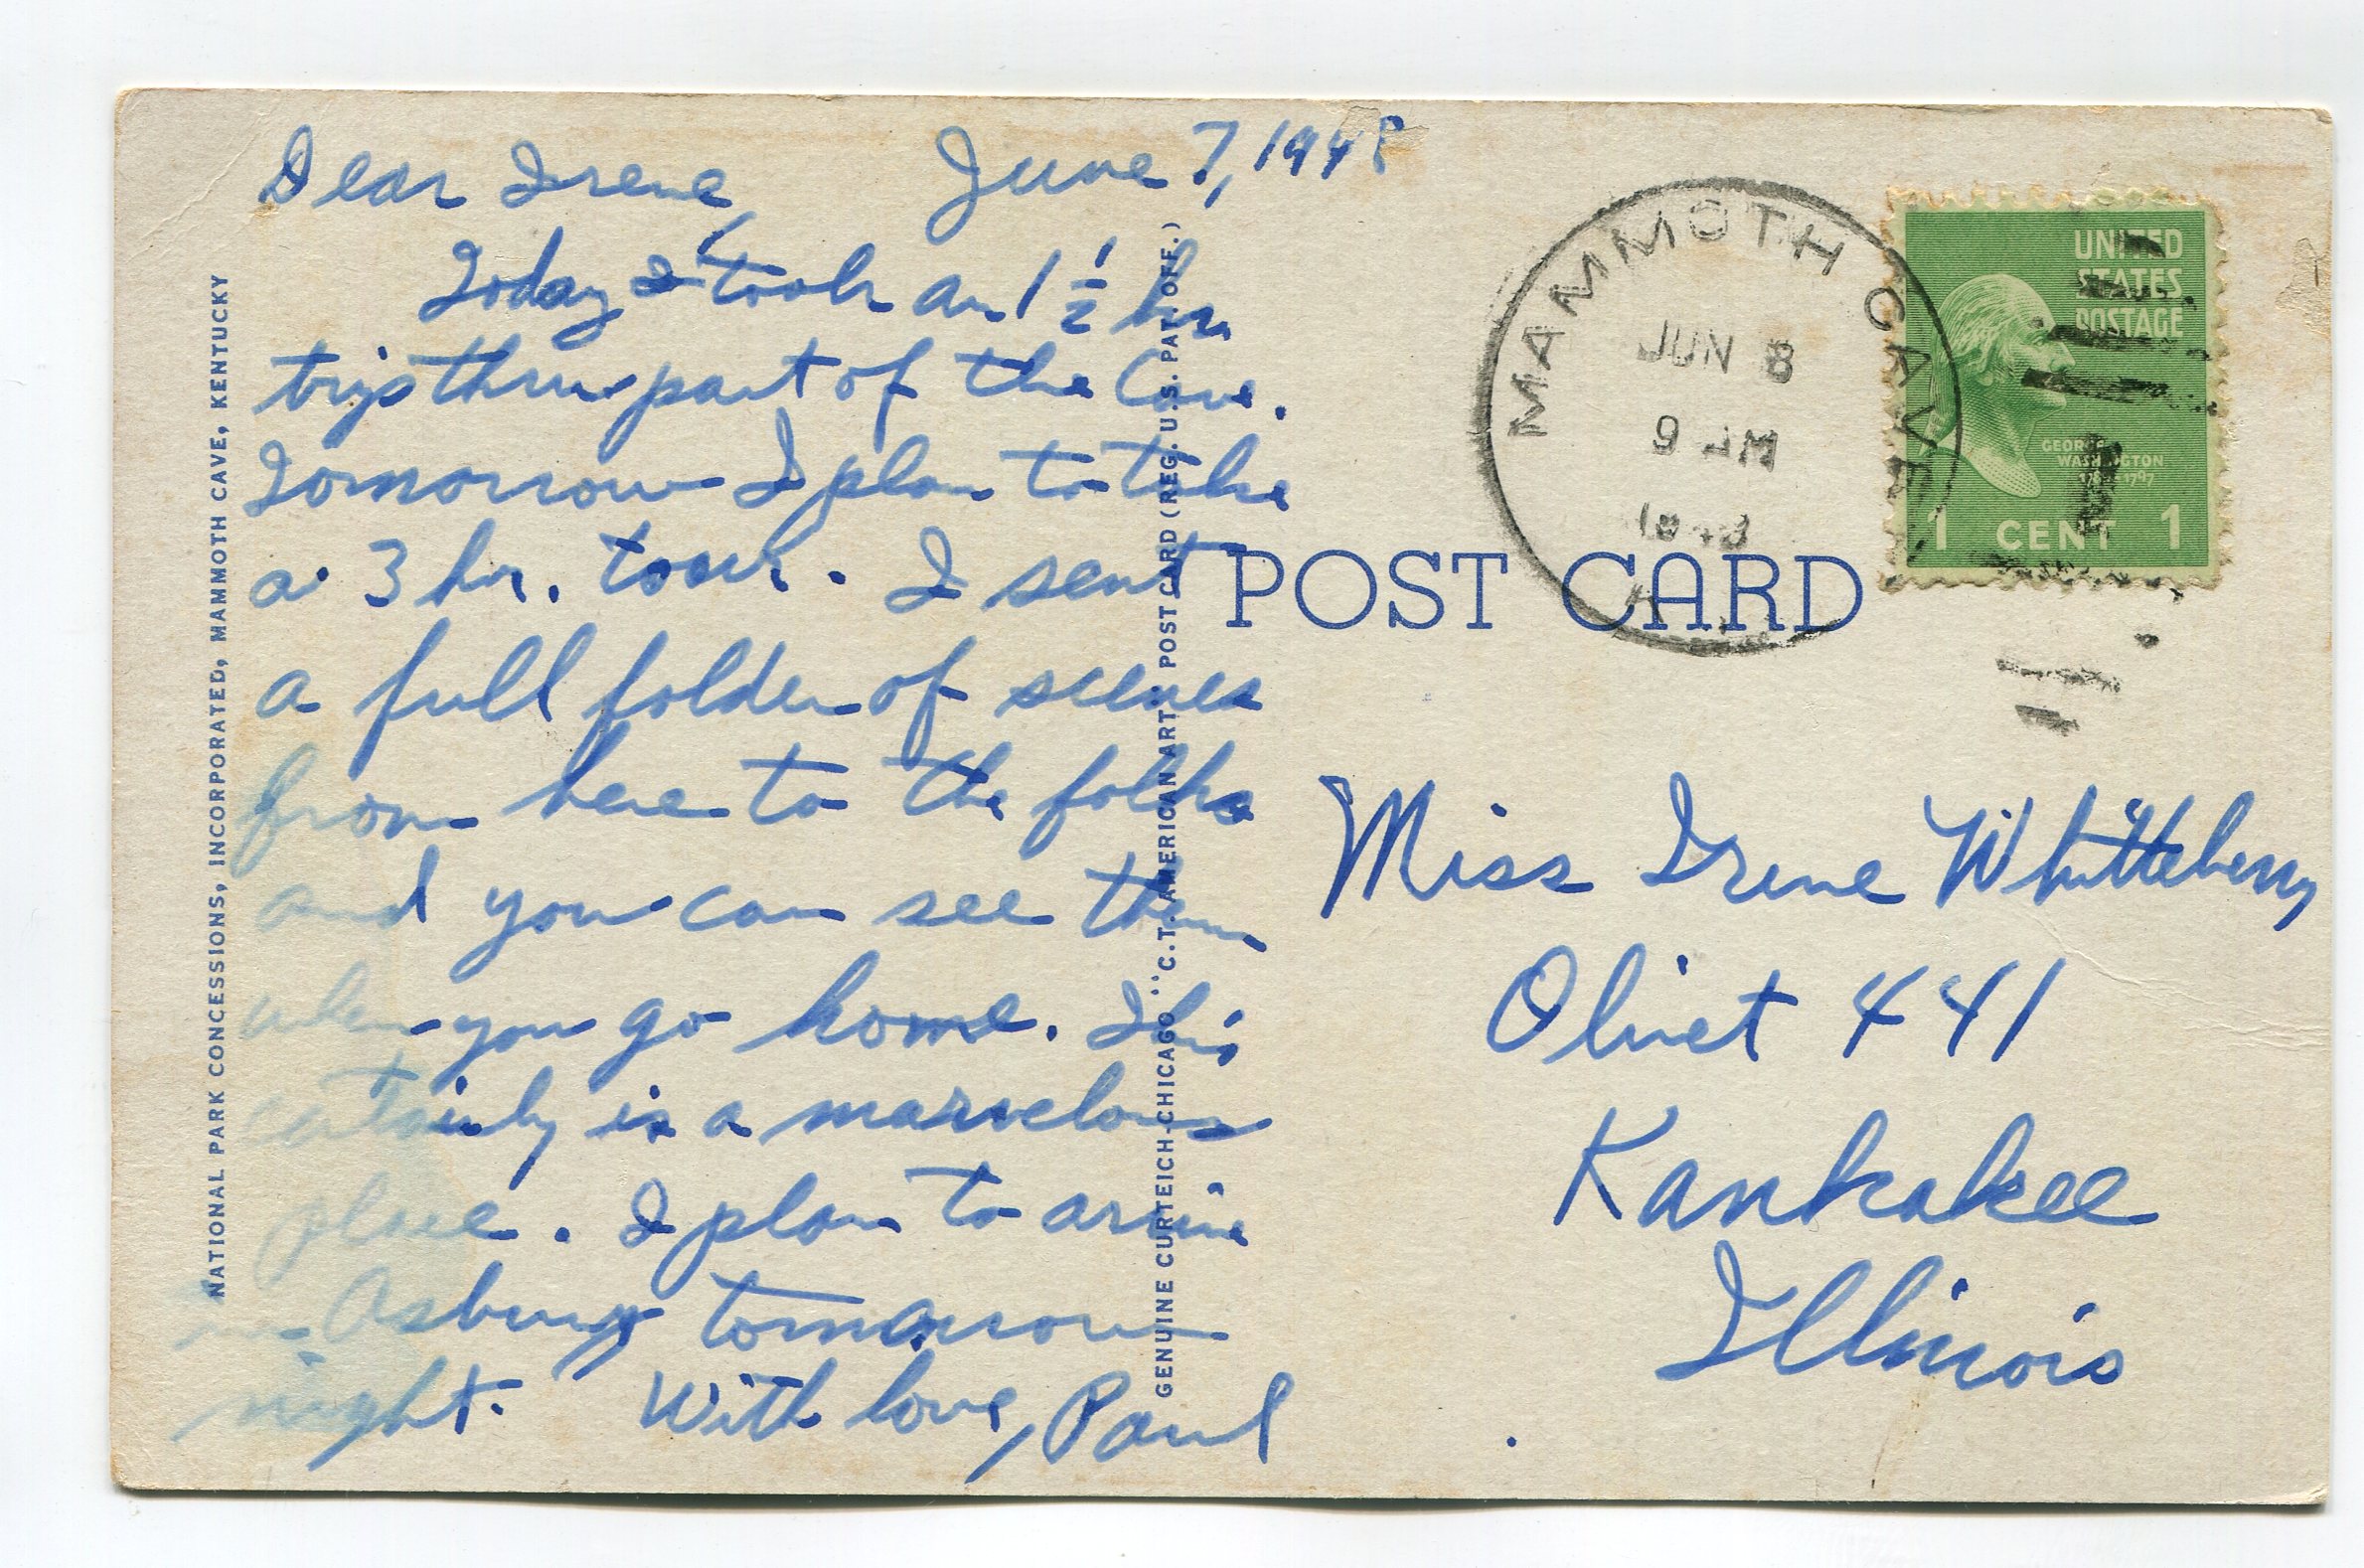 Dear Irene, June 7, 1948
Today I took an 1 1/2 hr.
trip thru part of the Cave.
Tomorrow I plan to take
a 3 hr. tour. I sent
a full folder of scenes
from here to the folks
and you can see them
when you go home. This
certainly is a marvelous
place. I plan to arrive
in Asbury tomorrow
night. With love, Paul
NATIONAL PARK CONCESSIONS, INCORPORATED, MAMMOTH CAVE, KENTUCKY
GENUINE CURTEICH-CHICAGO "C.T. AMERICAN ART" POST CARD (REG. U.S. PAT. OFF.)
POST CARD
MAMMOTH CAVE
JUN 8
9 AM
1948
UNITED
STATES
POSTAGE
GEORGE
WASHINGTON
1 CENT 1
Miss Irene Whitteberry
Olivet 441
Kankakee
Illinois